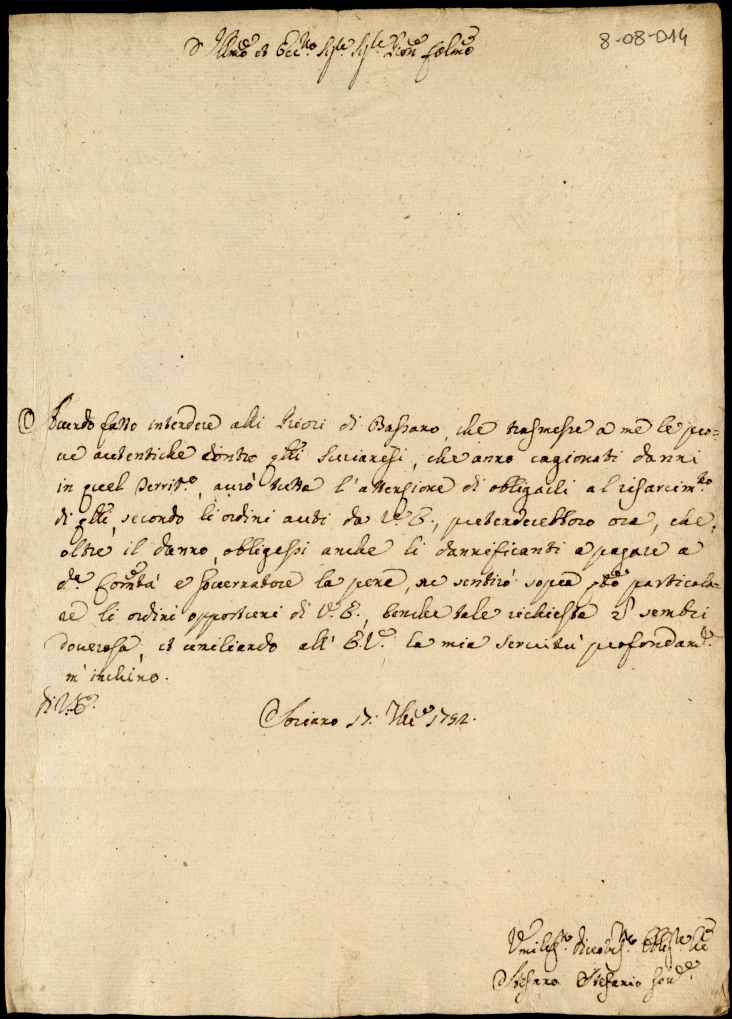 8-08-014
Ill.mo et Ecc.mo Sig.re Sig.re Pron.e Col.mo
Avendo fatto intendere alli Priori di Bassano, che trasmesse a me le pro=
ve autentiche contro q.lli Sorianesi, che anno cagionati danni
in quel Territ.o, avrò tutta l'attensione di obligarli al risarcim.to
di q.lli, secondo li ordini auti da V.E., pretenderebbero ora, che
oltre il danno, obligessi anche li dannificanti a pagare a
d.a Com.tà e Governatore la pena, ne sentirò sopra q.to particola=
re li ordini opportuni di V.E., benche tale richiesta mi sembri
doverosa, et umiliando all' E.V. la mia servitù profondam.e
m'inchino.
di V.E.
Soriano 17. 1752.
Umiliss.o Divotiss.o Obblig.mo
Stefano Stefanio Gov.re